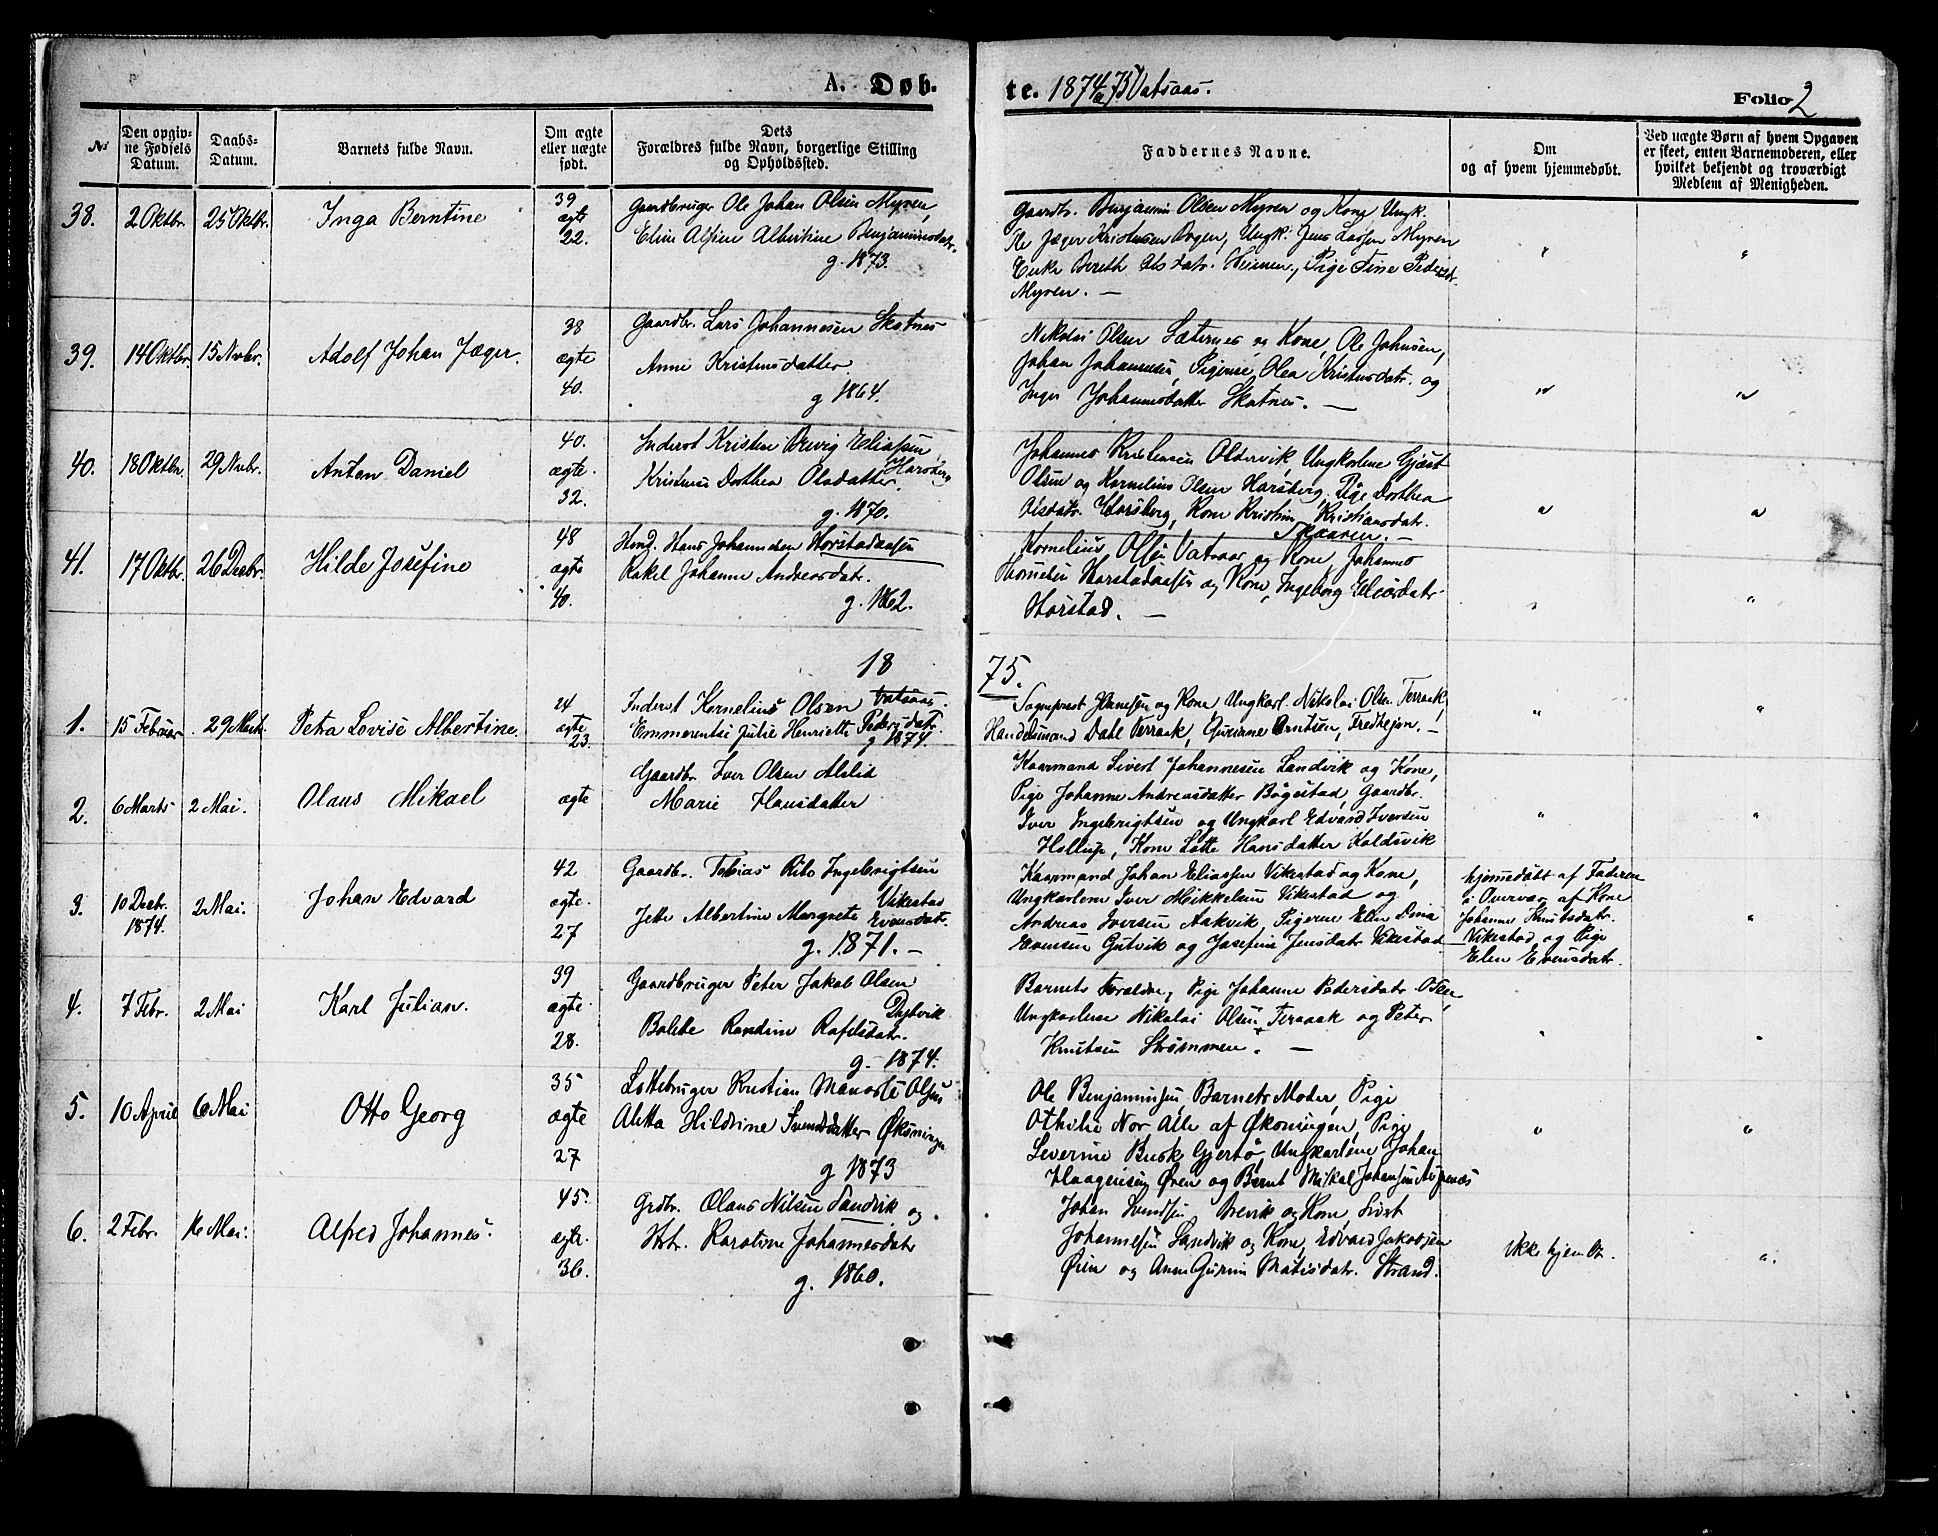 A. Døb-
te. 1874 a 75 Vatsaas.
Folio 2
№
Den opgiv-
ne Fødsels
Datum.
Daabs-
Datum.
Barnets fulde Navn.
Om ægte
eller uægte
født.
Dets
Forældres fulde Navn, borgerlige Stilling
og Opholdssted.
Faddernes Navne.
Om
og af hvem hjemmedøbt.
Ved uægte Børn af hvem Opgaven
er skeet, enten Barnemoderen, eller
hvilket bekjendt og troværdigt
Medlem af Menigheden.
38. 2 Oktbr. 25 Oktbr. Inga Berntine
39
ægte
22.
Gaardbruger Ole Johan Olsen Myren,
Elen Alfine Albertine Benjaminsdatr.
g. 1873.
Gaardbr. Benjamin Olsen Myren og Kone, Ungk.
Jæger Kristensen, Ungk. Jens Larsen Myren
Enke Bereth Olsdatr. Heimen, Pige Tine Pedersdtr.
Myren. —
39. 14 Oktbr. 15 Nvbr. Adolf Johan Jæger.
38
ægte
40.
Gaardbr. Lars Johannesen Skotnes
Anne Kristensdatter
g 1864.
Nikolai Olsen Sæternes og Kone, Ole Johnsen,
Johan Johannesen, Pigerne Olea Kristensdatr. og
Inger Johannesdatter Skotnes. —
40. 18 Oktbr. 29 Nvbr. Anton Daniel
40.
ægte.
32.
Inderst Kristen Elias Eliassen
Horsberg
Kristense Dorthea Olsdatter.
g. 1870.
Johannes Kristensen Oldervik, Ungkarlene Gjæst
Olsen og Kornelius Olsen Horsberg, Pige Dorthea
Olsdatr. Horsberg, Kone Kristine Kristiansdatr.
Skaaren. —
41. 17 Oktbr. 26 Decbr. Hilde Josefine
48
ægte
40.
Hmd. Hans Johannesen Horstadaasen
Rakel Johanne Andreasdatr.
g. 1862.
Kornelius Olsen Vatsaas og Kone, Johannes
Horstadaasen og Kone, Ingeborg Eliasdatr
Horstad. —
18
75.
1. 15 Februar. 29 Marts. Petra Lovise Albertine.
24
ægte
23.
Inderst Kornelius Olsen Vatsaas.
Emmerentse Julie Henriette Pedersdatr.
g 1874.
Sognepræst Hansen og Kone, Ungkarl Nikolai Olsen Terraak,
Handelsmand Dahl Terraak, Guriane Knutsen, Fredhejm. —
2. 6 Marts 2 Mai. Olaus Mikael
ægte
Gaardbr. Iver Olsen Alslid
Marie Hansdatter
Kaarmand Sivert Johannesen Sandvik og Kone,
Pige Johanne Andreasdatter Bøgestad, Gaardbr.
Iver Ingebrigtsen og Ungkarl Edvard Iversen
Hollup, Kone Lotte Hansdatter Koldsvik
3. 10 Decbr. 1874. 2 Mai. Johan Edvard
42
ægte.
27
Gaardbr. Tobias Ribo Ingebrigtsen
Vikestad
Jette Albertine Margrete Evensdatr.
g. 1871. —
Kaarmand Johan Eliassen Vikestad og Kone,
Ungkarlene Iver Mikkelsen Vikestad og
Andreas Iversen Aakvik, Pigerne Elen Dina
Gutvik og Josefine Jensdatr Vikestad
hjemmedøbt af Faderen
i Overvær af Kone
Johanne Knutsdatr.
Vikestad og Pige
Elen Evensdatr.
4. 7 Febr. 2 Mai Karl Julian.
39
ægte.
28.
Gaardbruger Peter Jakob Olsen
Dybvik
Bolette Randine Rafelsdatr.
g. 1874.
Barnets Forældre, Pige Johanne Pedersdatr Osen,
Ungkarlene Nikolai Olsen Terraak og Peter
Knutsen Strømmen. —
5. 10 April 6 Mai Otto Georg
35
ægte
27
Lottebruger Kristian Olsen
Aletta Hildrine Svendsdatter Økoningen
g 1873
Ole Benjaminsen, Barnets Moder, Pige
Othilie Nor Alle af Økoningen, Pige
Severine Busk Gjertø, Ungkarlene Johan
Haagensen Øren og Bernt Mikal Johansen
6. 2 Febr. 16 Mai. Alfred Johannes.
45.
ægte.
36.
Grdbr. Olaus Nilsen Sandvik og
Hstr. Karoline Johannesdatr
g. 1860.
Johan Svendsen Brevik og Kone, Sivert
Johannesen Sandvik og Kone, Edvard Jakobsen
Øren og Anne Gurine Matisdatr. Strand.
Ikke hjemdt.